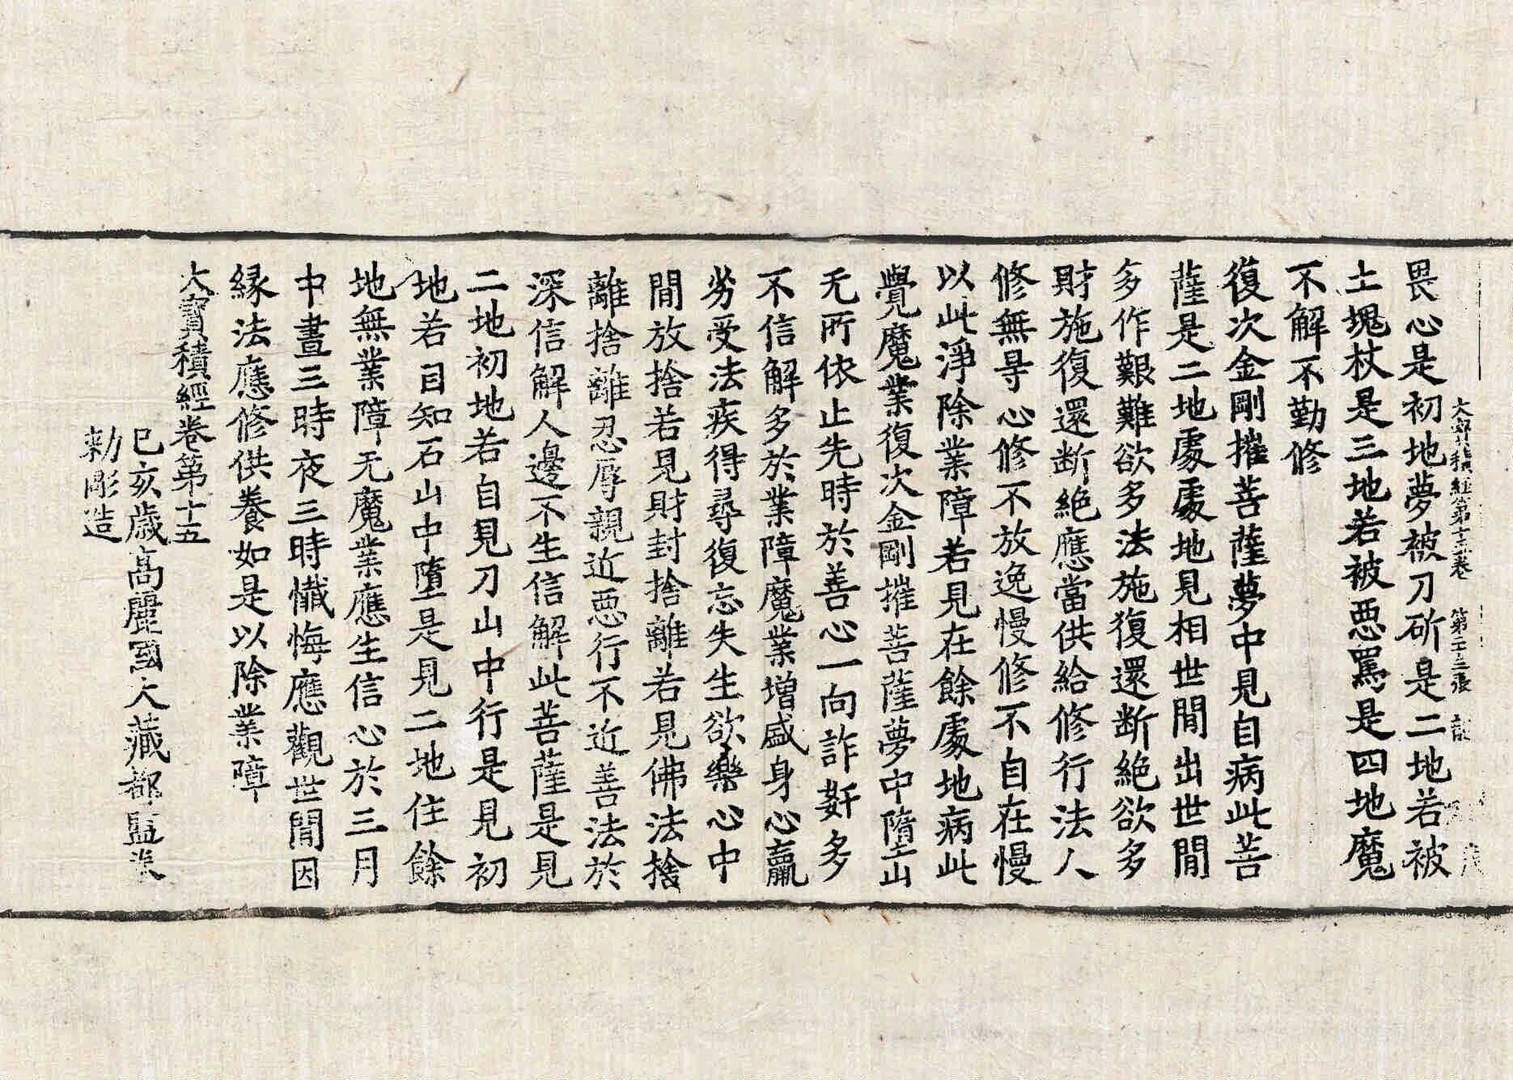 大寶積經第十五卷 第二十三張
畏心是初地夢被刀斫是二地若被
土塊杖是三地若被惡罵是四地魔
不解不勤修
復次金剛摧菩薩夢中見自病此菩
薩是二地處處地見相世間出世間
多作艱難欲多法施復還断絶欲多
財施復還断絶應當供給修行法人
修無㝵心修不放逸慢修不自在慢
以此淨除業障若見在餘處地病此
覺魔業復次金剛摧菩薩夢中墮山
无所依止先時於善心一向詐姧多
不信解多於業障魔業增盛身心羸
劣受法疾得尋復忘失生欲樂心中
間放捨若見財封捨離若見佛法捨
離捨離忍辱親近惡行不近善法於
深信解人邊不生信解此菩薩是見
二地初地若自見刀山中行是見初
地若自知石山中墮是見二地住餘
地無業障无魔業應生信心於三月
中晝三時夜三時懺悔應觀世間因
縁法應修供養如是以除業障
大寶積經卷第十五
巳亥歳高麗國大藏都監奉
勅彫造